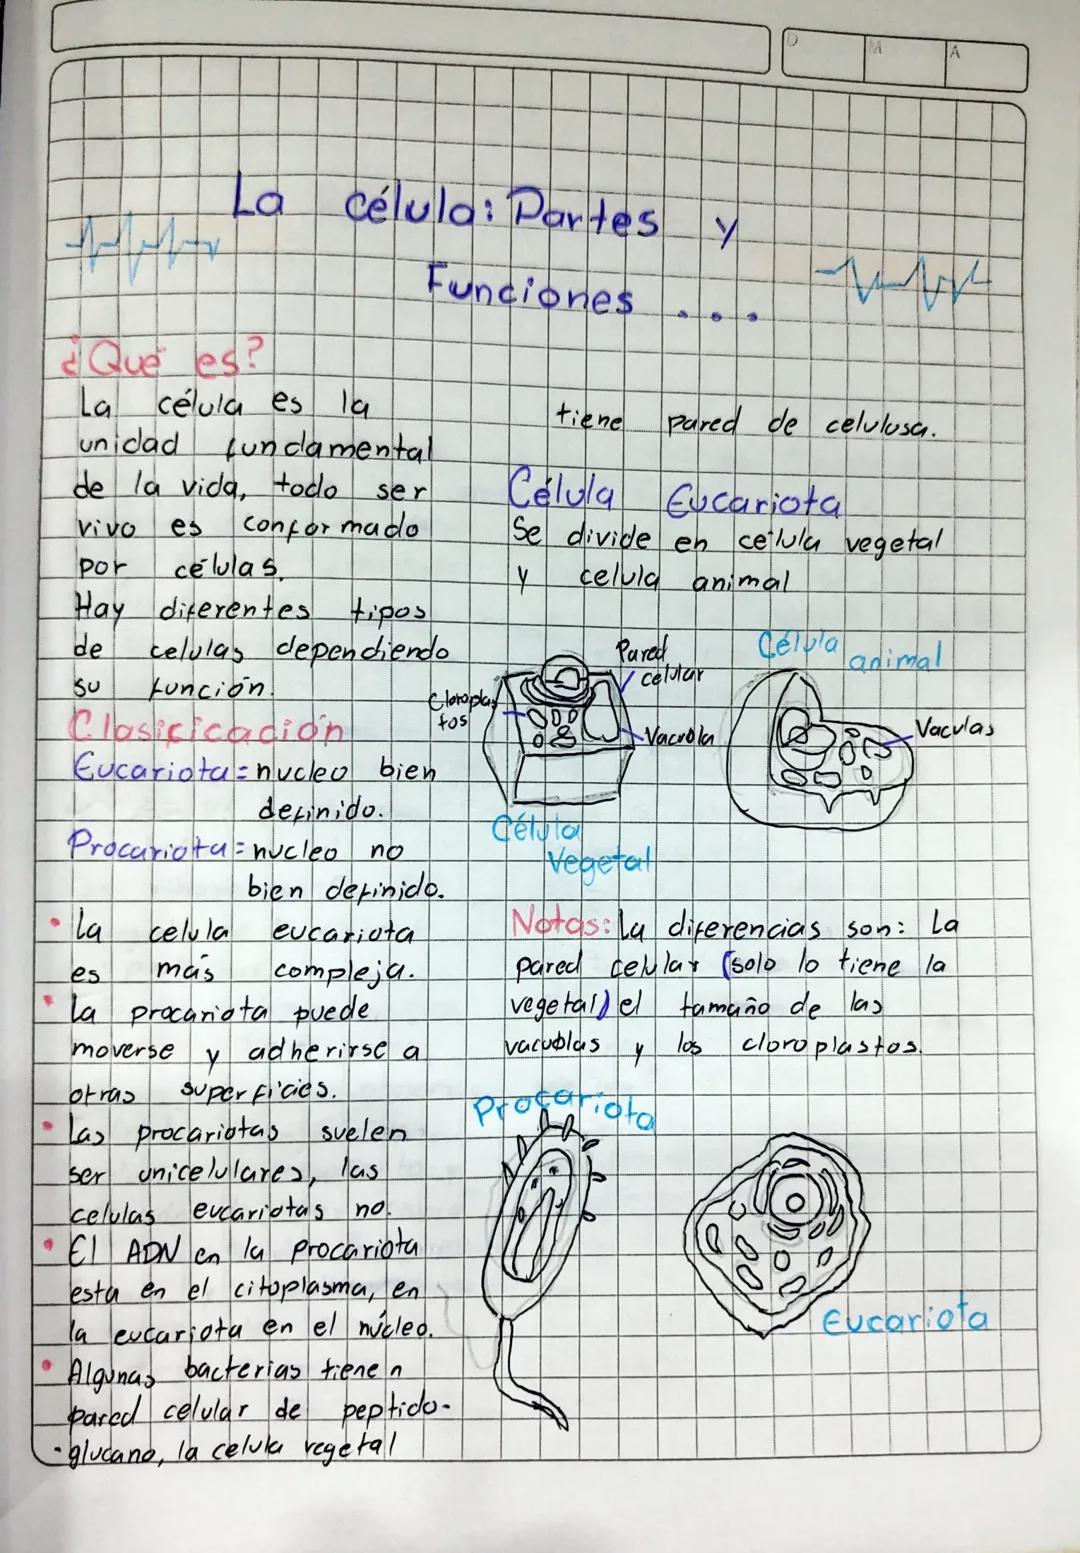 D M A
La célula: Partes y
Funciones ...
¿Qué es?
La célula es la
unidad fundamental
de la vida, todo ser
vivo es conformado
por células.
Hay diferentes tipos
de celulas dependiendo
su función.
Clasificación
Eucariota = nucleo bien
definido.
Procariota = nucleo no
bien definido.
• La celula eucariota
es más compleja.
• La procariota puede
moverse y adherirse a
otras superficies.
• Las procariotas suelen
ser unicelulares, las
celulas eucariotas no.
• El ADN en la procariota
esta en el citoplasma, en
la eucariota en el núcleo.
• Algunas bacterias tienen
pared celular de peptido-
-glucano, la celula vegetal
tiene pared de celulosa.
Célula Eucariota
Se divide en célula vegetal
y celula animal
Pared
celular
Cloroplas
tos
Vacuola
Célula
Vegetal
Célula
animal
Vaculas
Notas: La diferencias son: La
pared celular (solo lo tiene la
vegetal) el tamaño de las
vacuolas y los cloroplastos.
Procariota
Eucariota